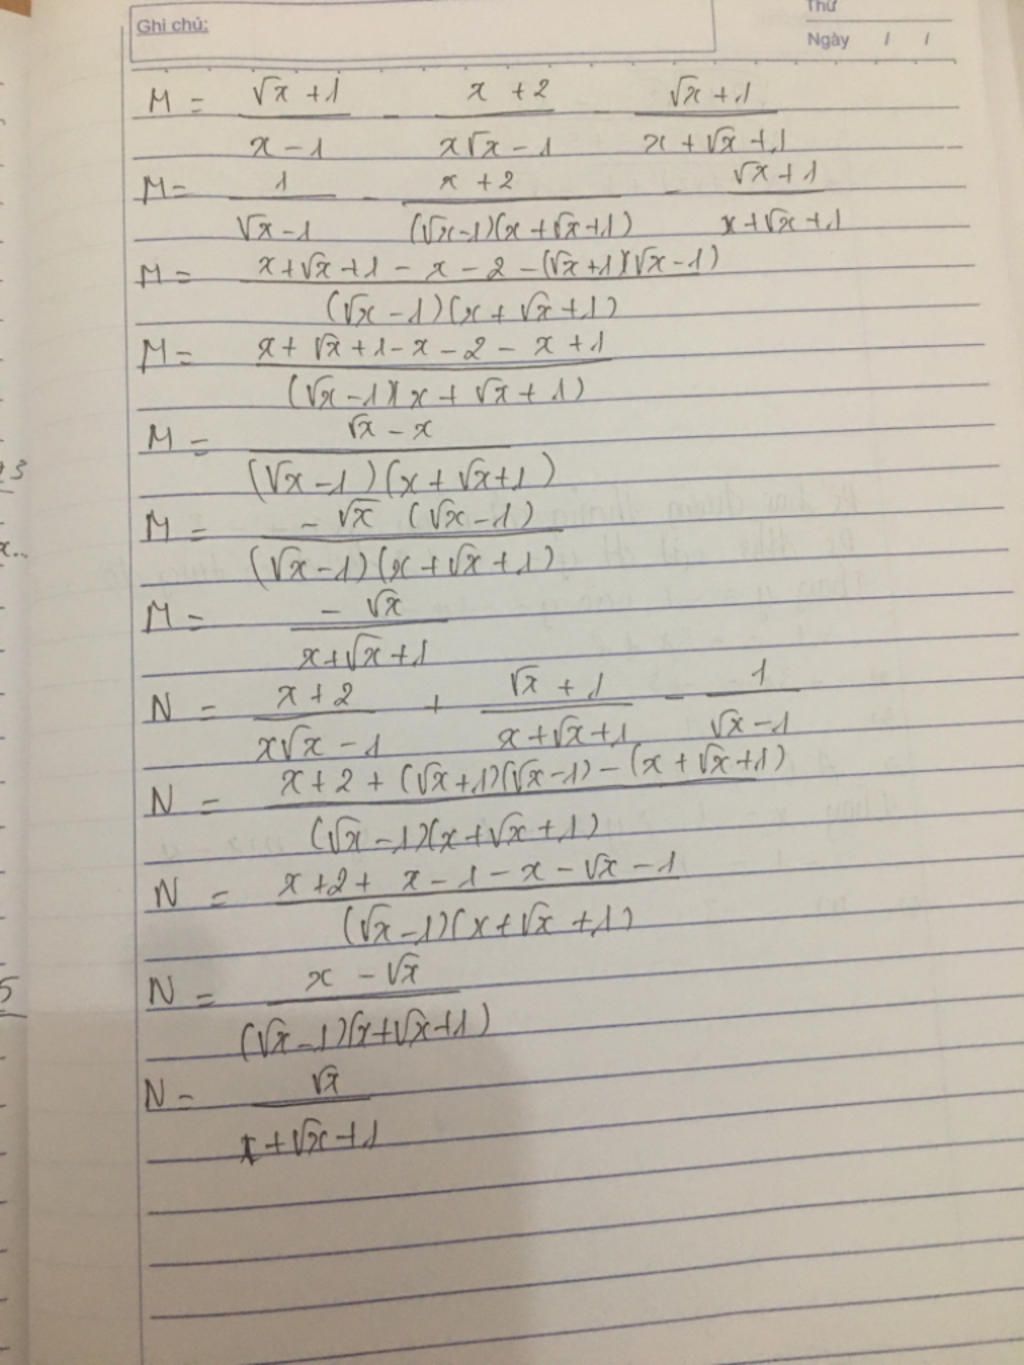 Ghi chú:
Thứ
Ngày / /
M = (√x + 1)/(x - 1) - (x + 2)/(x√x - 1) - (√x + 1)/(x + √x + 1)
M = 1/(√x - 1) - (x + 2)/((√x - 1)(x + √x + 1)) - (√x + 1)/(x + √x + 1)
M = (x + √x + 1 - x - 2 - (√x + 1)(√x - 1))/((√x - 1)(x + √x + 1))
M = (x + √x + 1 - x - 2 - x + 1)/((√x - 1)(x + √x + 1))
M = (√x - x)/((√x - 1)(x + √x + 1))
M = (-√x (√x - 1))/((√x - 1)(x + √x + 1))
M = (-√x)/(x + √x + 1)
N = (x + 2)/(x√x - 1) + (√x + 1)/(x + √x + 1) - 1/(√x - 1)
N = (x + 2 + (√x + 1)(√x - 1) - (x + √x + 1))/((√x - 1)(x + √x + 1))
N = (x + 2 + x - 1 - x - √x - 1)/((√x - 1)(x + √x + 1))
N = (x - √x)/((√x - 1)(x + √x + 1))
N = √x/(x + √x + 1)